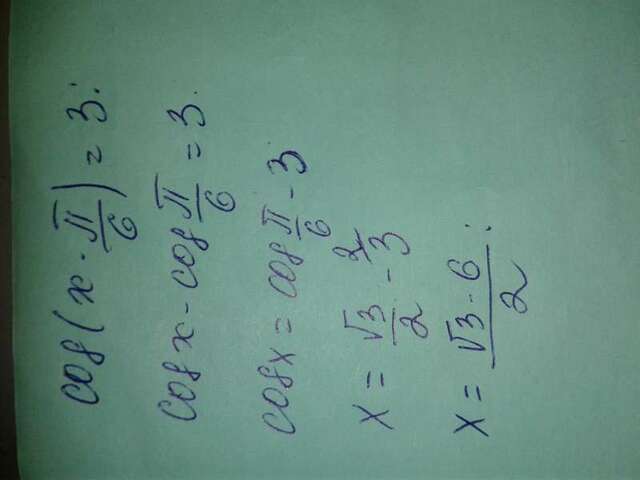 cos(x - π/6) = 3;
cos x - cos π/6 = 3.
cos x = cos π/6 - 3
x = √3/2 - 3 ^2/
x = (√3 - 6)/2 :